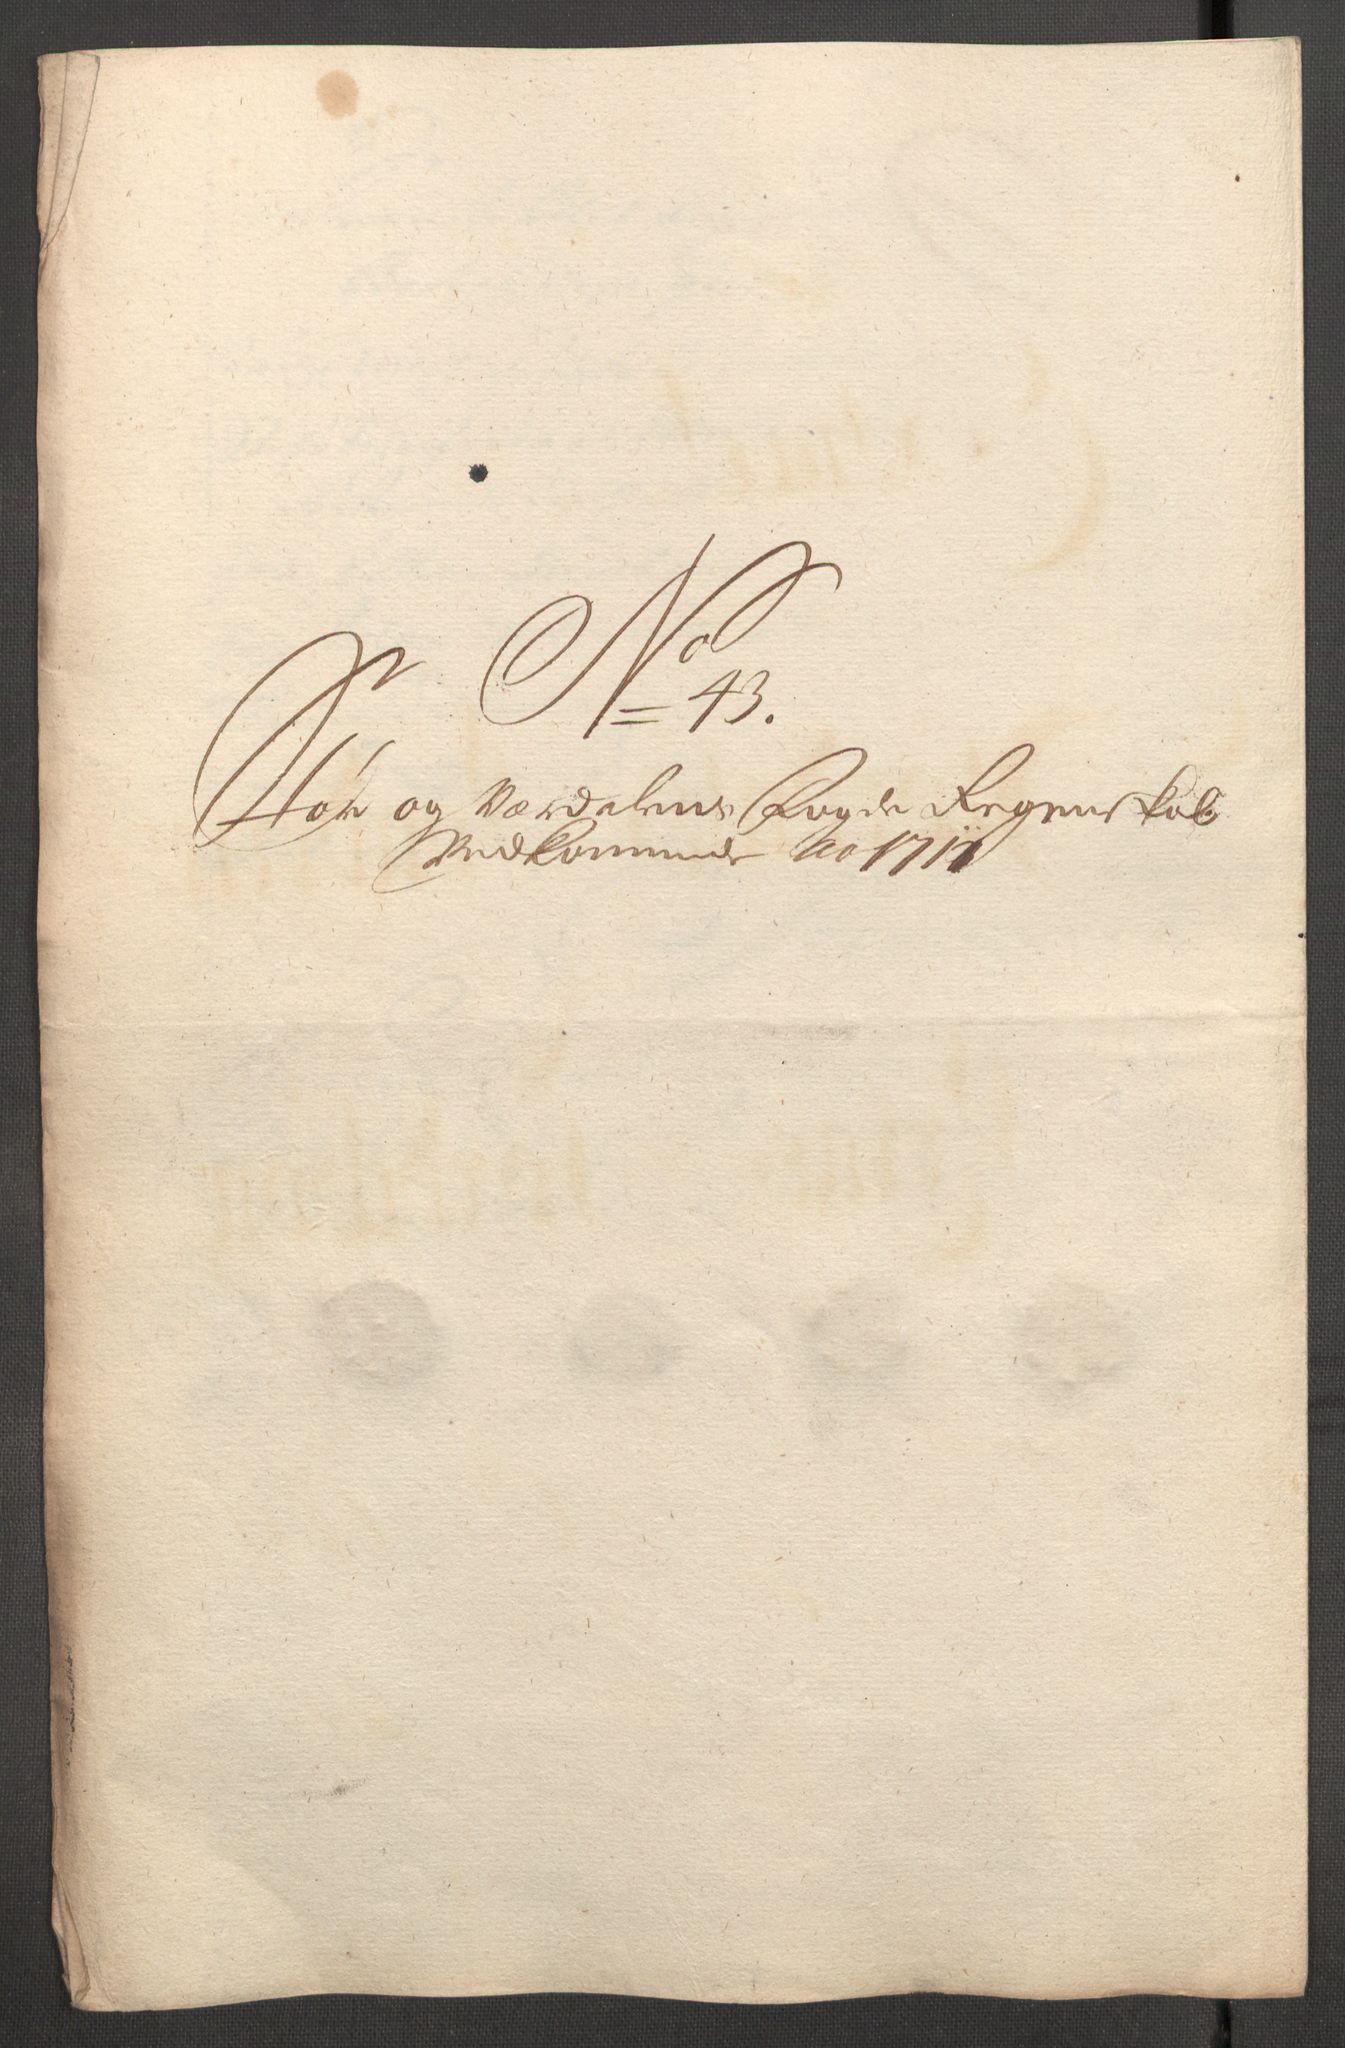 No
43.
Stør og Værdalens Fogde Regenskab
Vedkommende Ao 1711